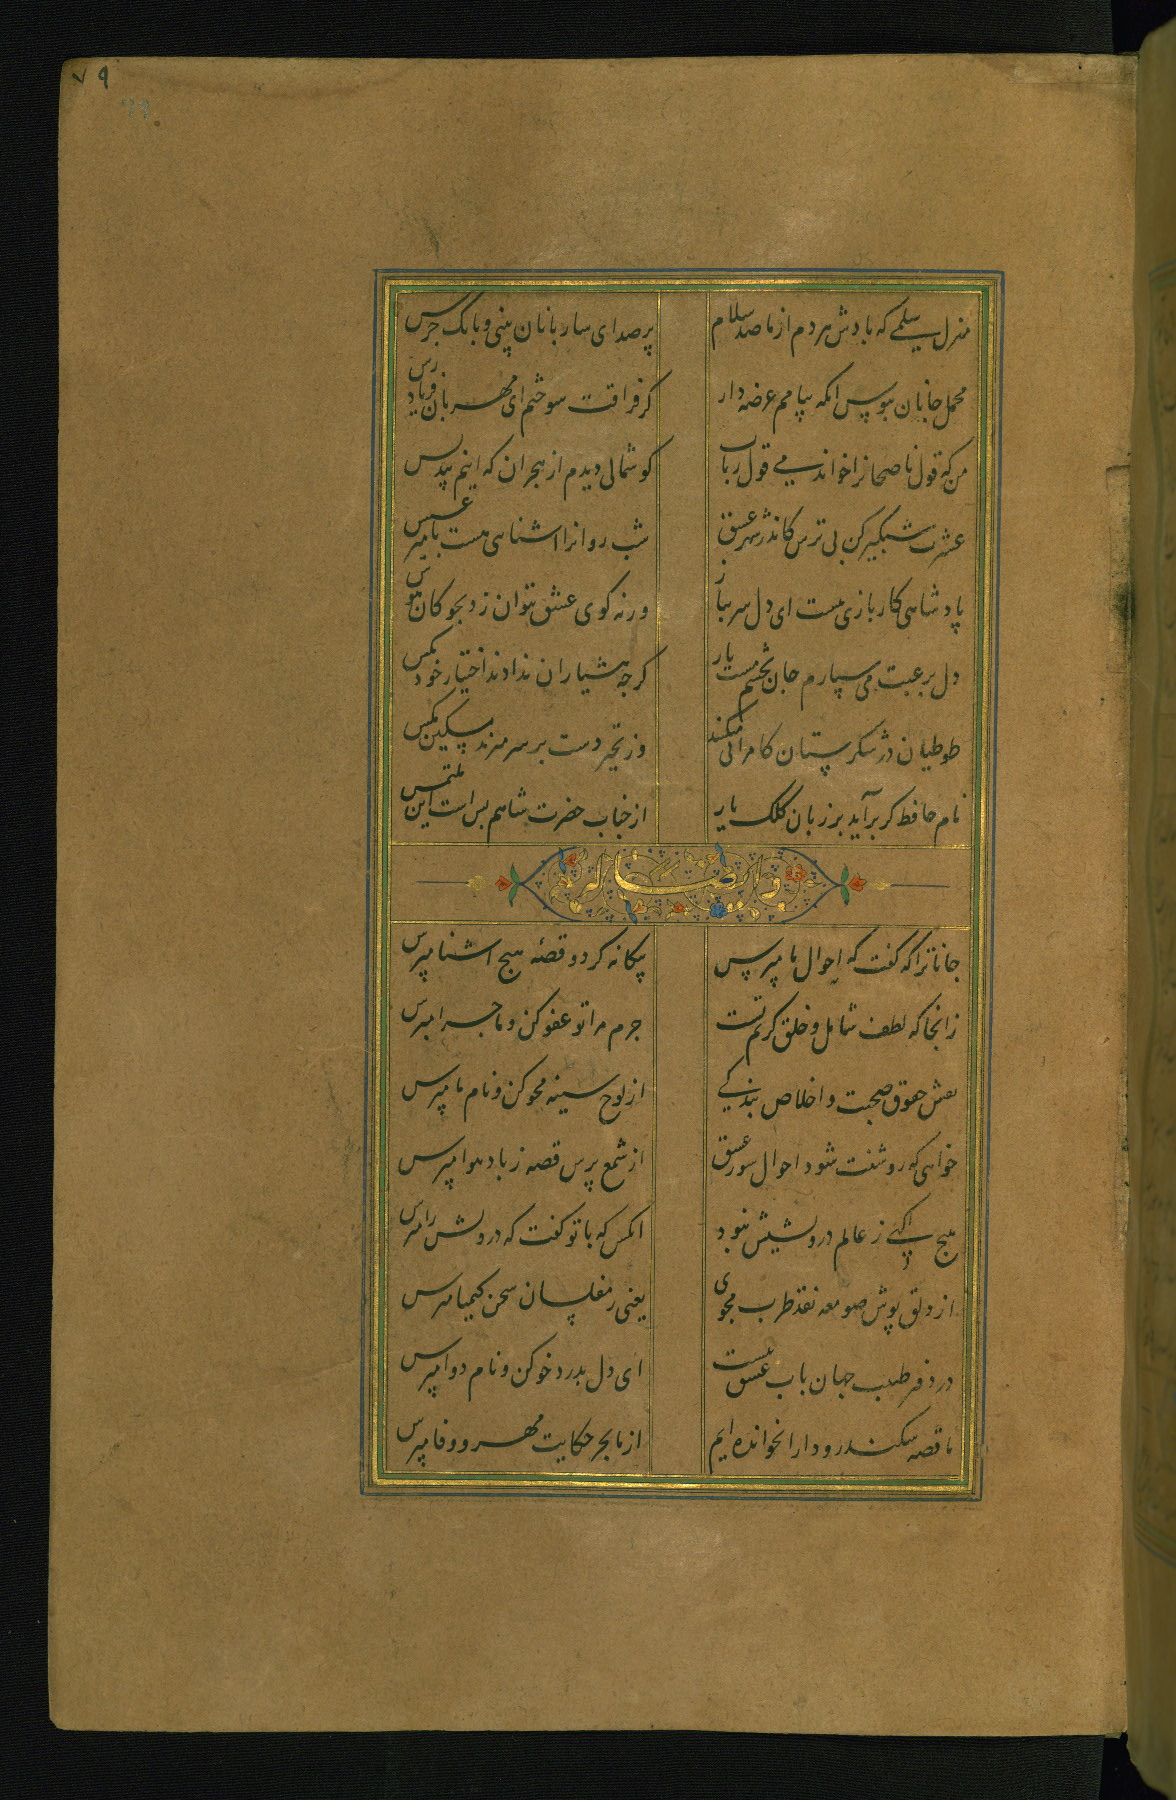 ۷۹
منزل سلمے که بادش هردم از ما صد سلام
پر صدای ساربانان بینی و بانک جرس
محمل جانان ببوس انکه پیامم عرضه دار
کز فراقت سوختم ای مهربان فریاد رس
من که قول ناصحانرا خواندمی قول رباب
کوشمالی دیدم از هجران که اینم پند بس
عشرت شبکیر کن بی ترس کاندر شهر عشق
شب روانرا اشناهی هست با میر عسس
پادشاهی کار بازی نیست ای دل سر بباز
ورنه کوی عشق نتوان زد بچوکان هوس
دل برغبت می سپارم جان بچشم مست یار
کرچه هشیاران ندادند اختیار خود بکس
طوطیان در شکرستان کامرانی میکنند
وز تحیر دست بر سر میزند مسکین مکس
نام حافظ کر برآید بر زبان کلک یار
از جناب حضرت شاهم بس است این ملتمس
و ایضاً له
جانا ترا که کفت که احوال ما مپرس
بیکانه کرد و قصه هیچ اشنا مپرس
زانجا که لطف شامل و خلق کریم تست
جرم مرا تو عفو کن و ماجرا مپرس
نقش حقوق صحبت و اخلاص بندیکے
از لوح سینه محو کن و نام ما مپرس
خواهی که روشنت شود احوال سوز عشق
از شمع پرس قصه ز باد هوا مپرس
هیچ اکهے ز عالم درویشیش نبود
انکس که با تو کفت که درویش را مپرس
از دلق پوش صومعه نقد طرب مجوی
یعنی ز مفلسان سخن کیمیا مپرس
در دفتر طبیب جهان باب عشق نیست
ای دل بدرد خو کن و نام دوا مپرس
ما قصه سکندر و دارا نخوانده ایم
از ما بجز حکایت مهر و وفا مپرس